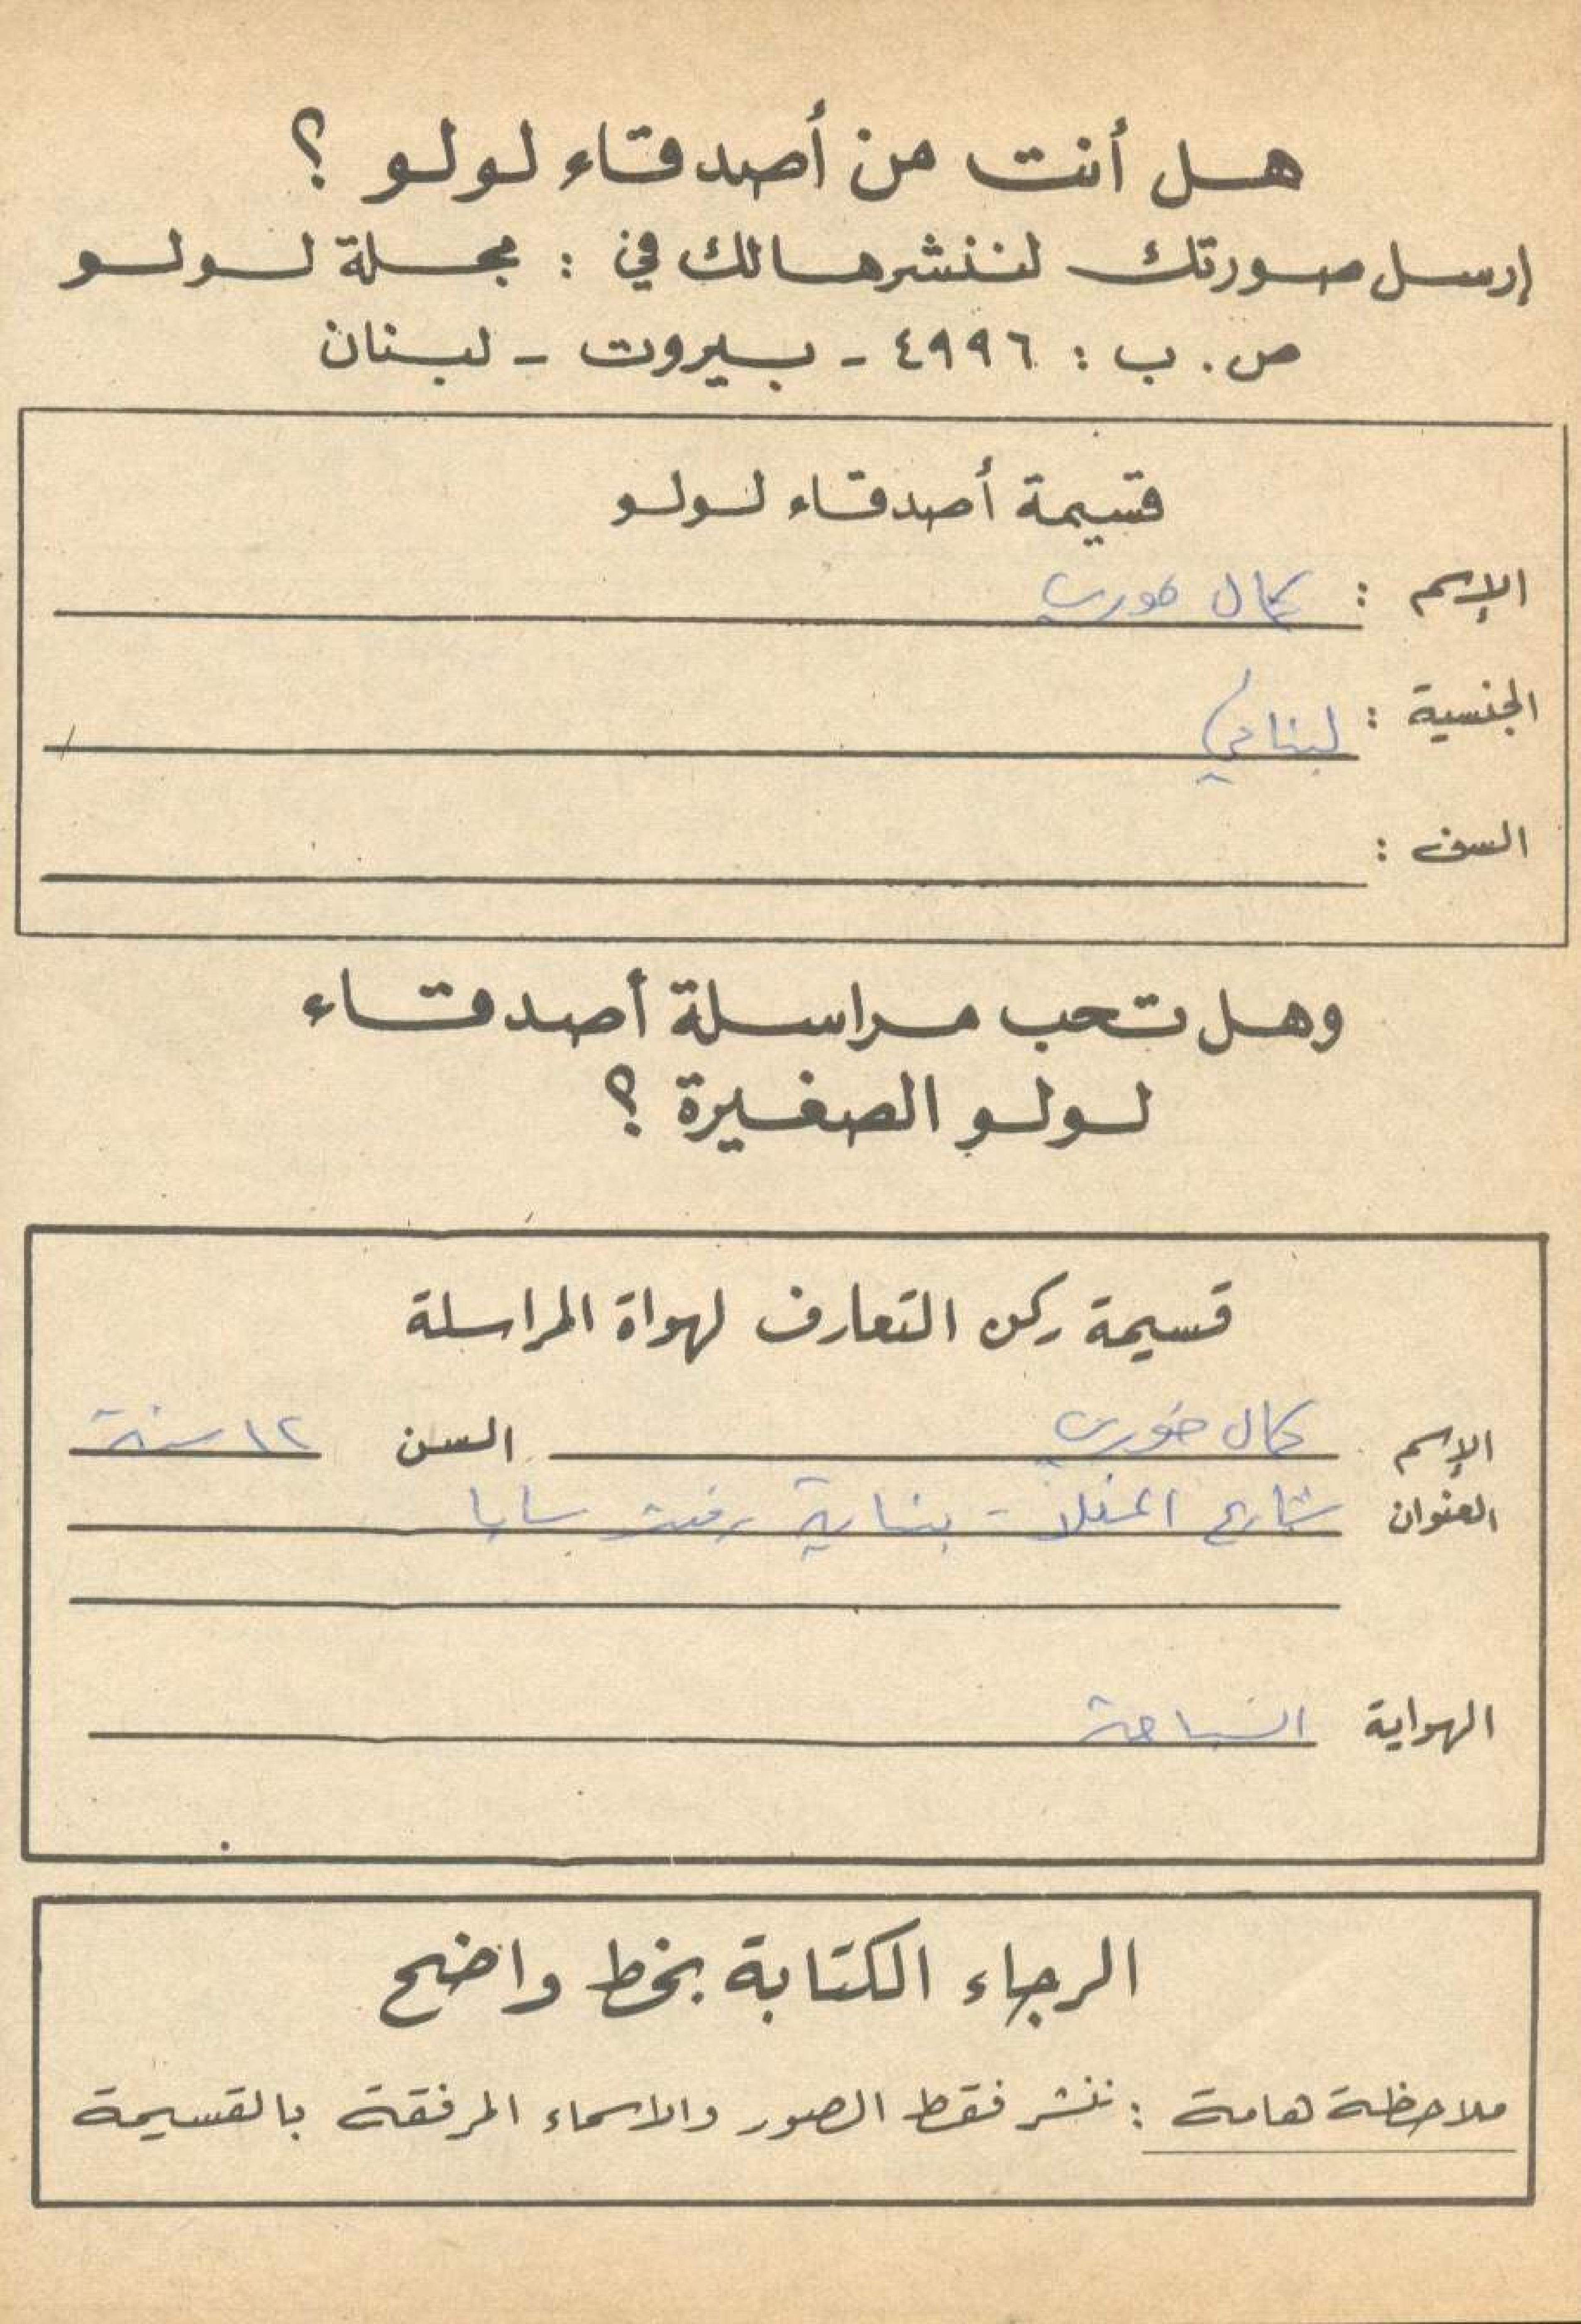 هل أنت من أصدقاء لولو ؟
إرسل صورتك لننشرها لك في : مجلة لولو
ص . ب : ٤٩٩٦ - بيروت - لبنان
قسيمة أصدقاء لولو
الإسم : كمال خوري
الجنسية : لبناني
السن :
وهل تحب مراسلة أصدقاء
لولو الصغيرة ؟
قسيمة ركن التعارف لهواة المراسلة
الإسم كمال خوري السن ١٢ سنة
العنوان شارع - بناية سابا
الهواية السباحة
الرجاء الكتابة بخط واضح
ملاحظة هامة : ننشر فقط الصور والاسماء المرفقة بالقسيمة